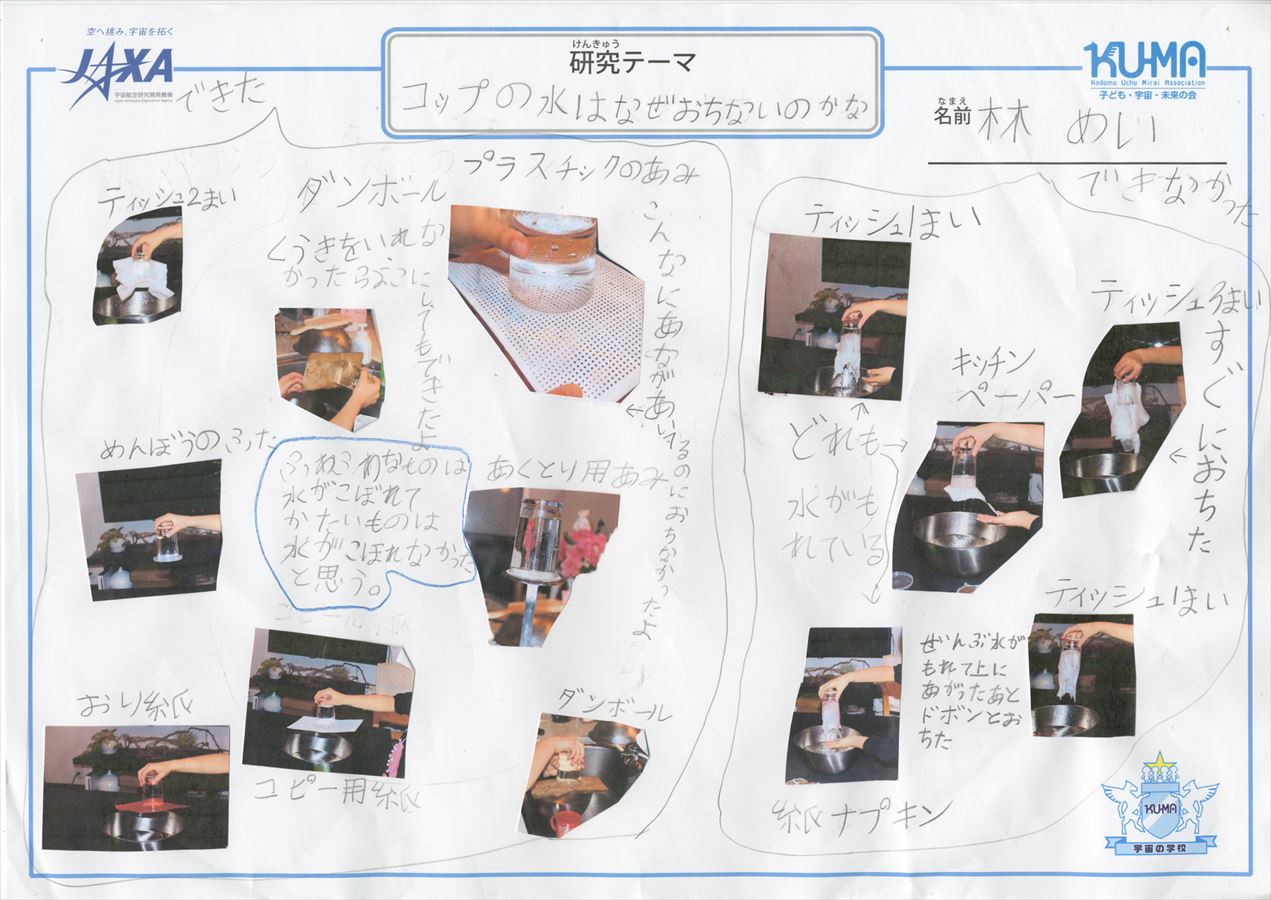 空へ挑み、宇宙を拓く
JAXA
宇宙航空研究開発機構
Japan Aerospace Exploration Agency
けんきゅう
研究テーマ
コップの水はなぜおちないのかな
KU-MA
Kodomo Uchu Mirai Association
子ども・宇宙・未来の会
なまえ
名前 林 めい
できた
ティッシュ2まい
ダンボール
くうきをいれな
かったらよこに
してもできたよ
プラスチックのあみ
こんなにあながあいているのにおちなかったよ
めんぼうのふた
ふわふわなものは
水がこぼれて
かたいものは
水がこぼれなかった
と思う。
あくとり用あみ
コピー用紙
おり紙
コピー用紙
ダンボール
できなかった
ティッシュ1まい
ティッシュ3まい
すぐにおちた
キッチン
ペーパー
どれも
水がも
れている
ティッシュ1まい
ぜんぶ水が
もれて上に
あがったあと
ドボンとお
ちた
紙ナプキン
KU-MA
宇宙の学校